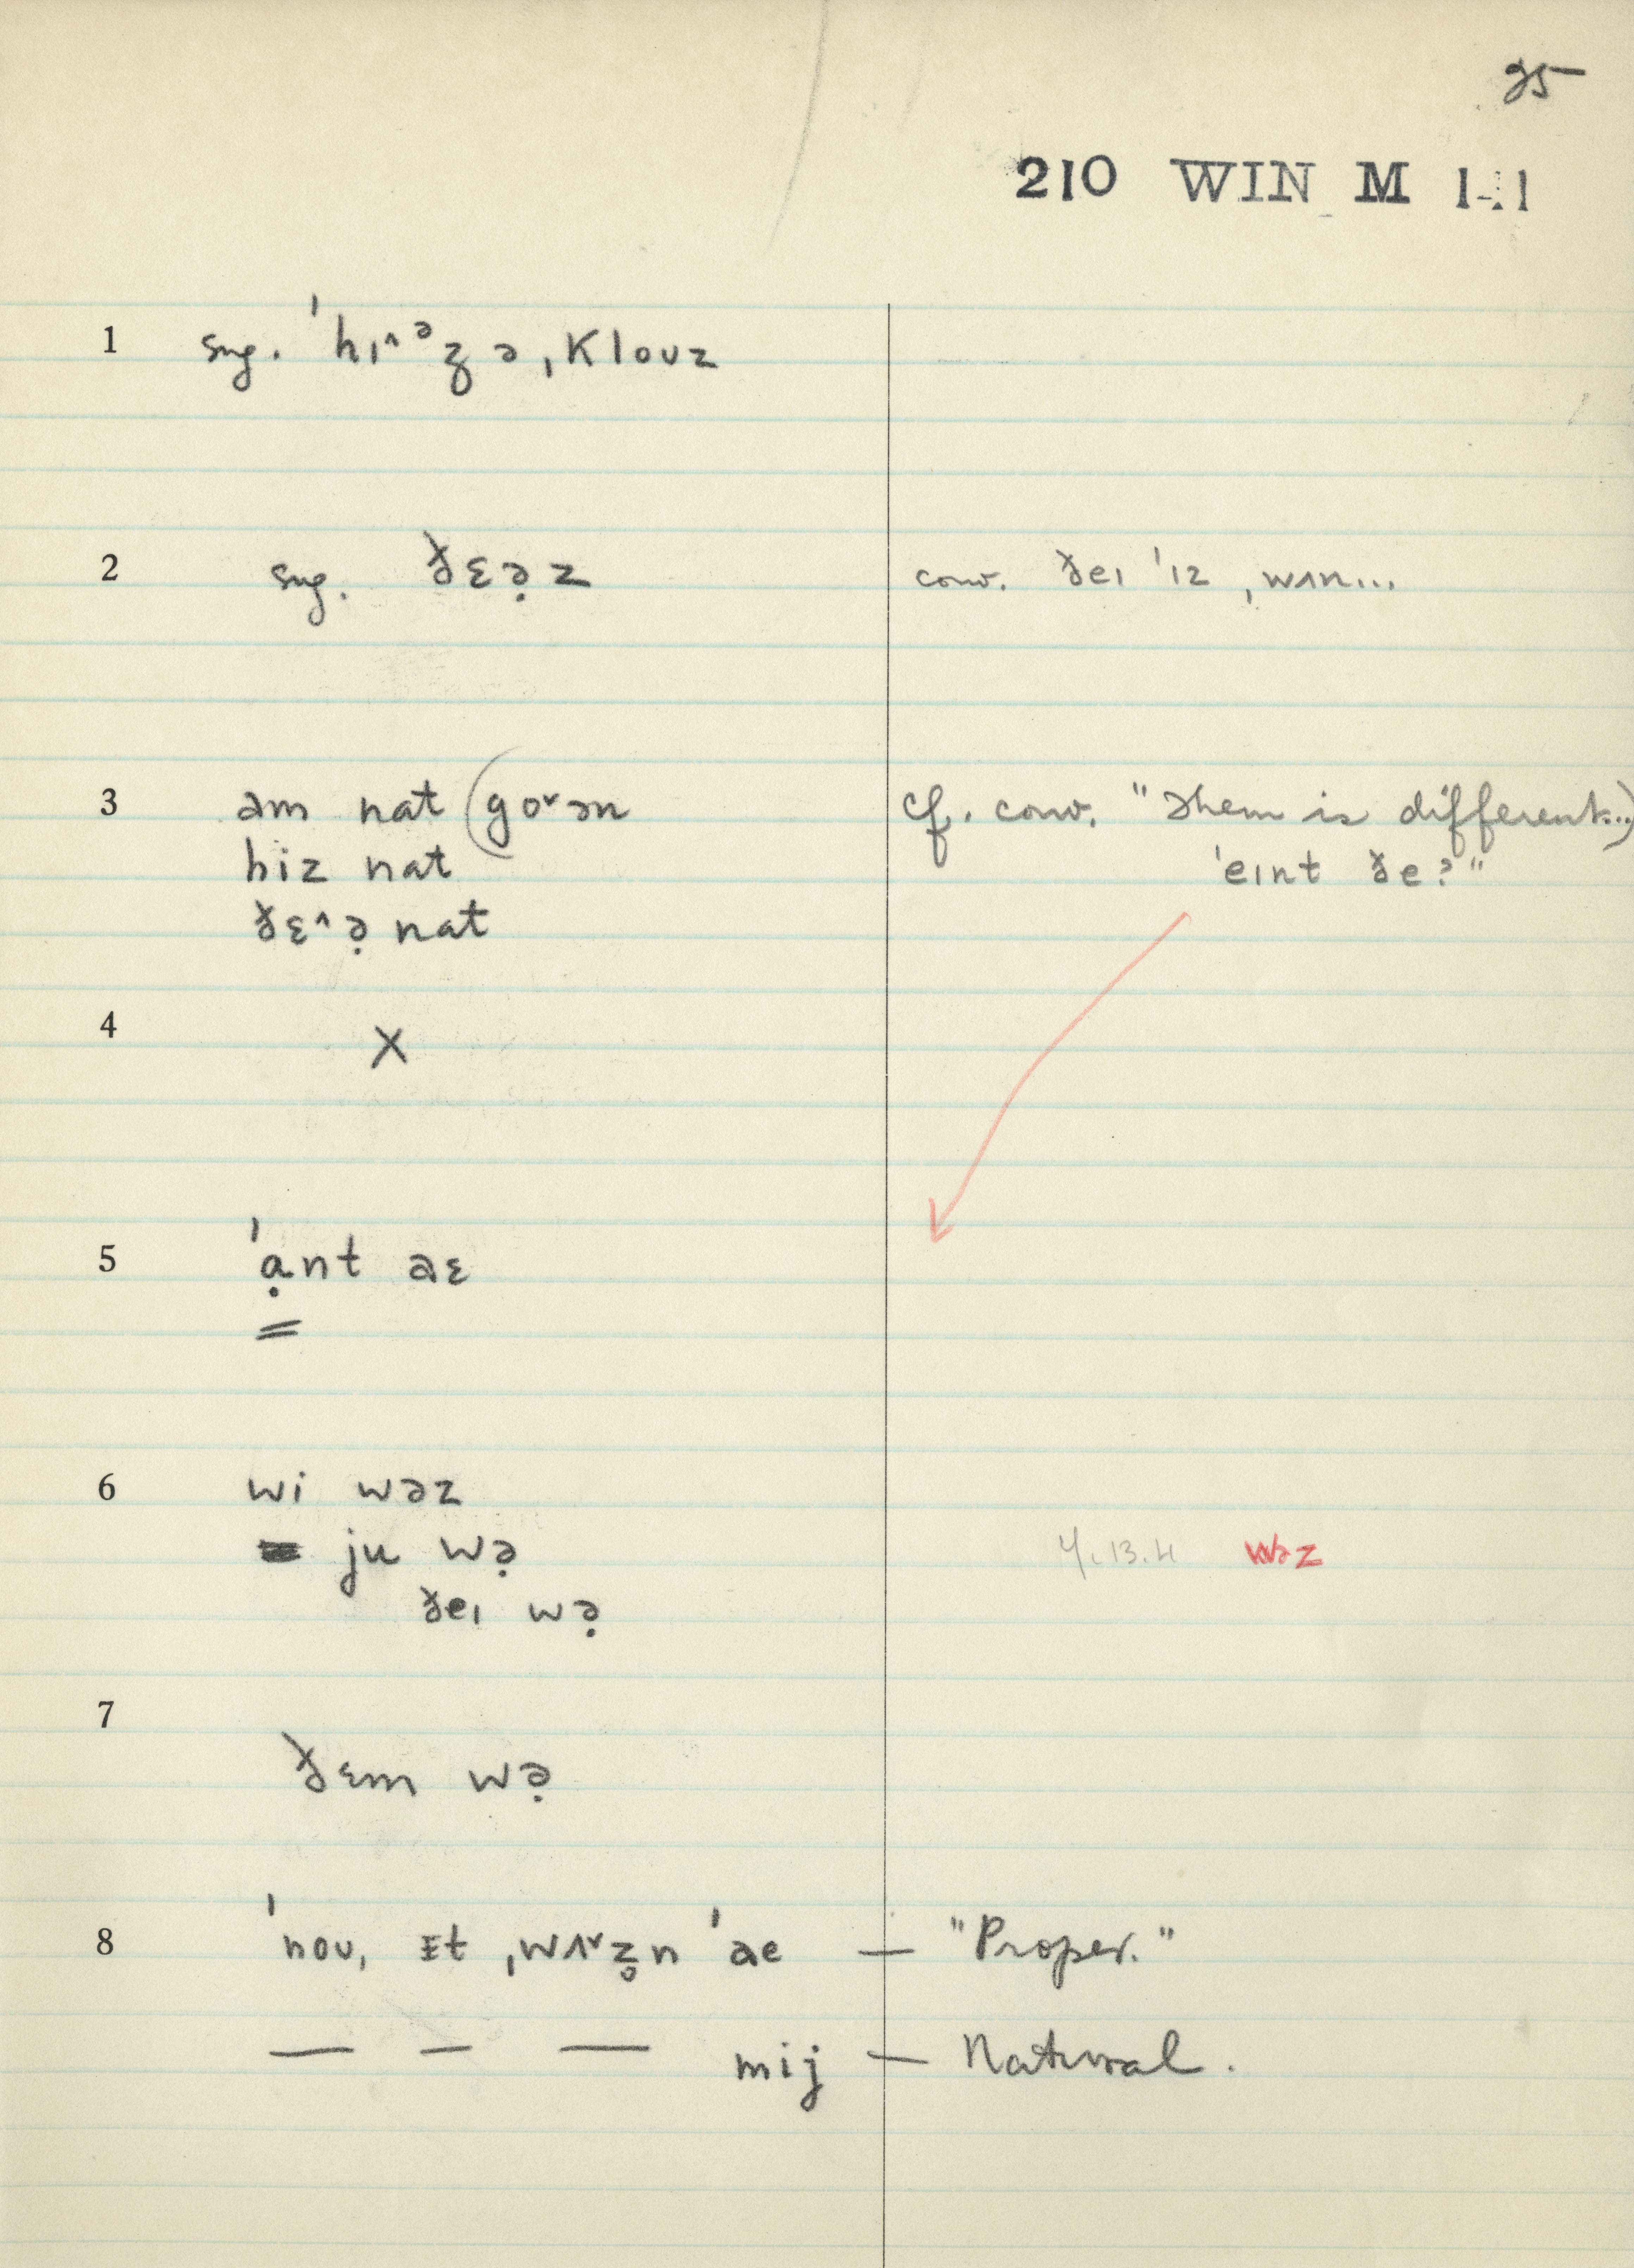 25
210 WIN M 1-1
1 sug. ˈhɪ^ᵊz̥ ə ˌklouz
2 sug. ðɛə̣z conv. ðeɪ ˈɪz ˌwʌn...
3 əm nat (go˅ən cf. conv. "Them is different...)
hiz nat ˈeɪnt ðe?"
ðɛ^ə̣ nat
4 X
5 ˈạnt aɛ
6 wi wəz
ju wə̣ 4.13.4 wəz
ðeɪ wə̣
7
ðɛm wə̣
8 ˈnou, ɪt ˌwʌ˅z̥n ˈae — "Proper."
— — — mij — Natural.